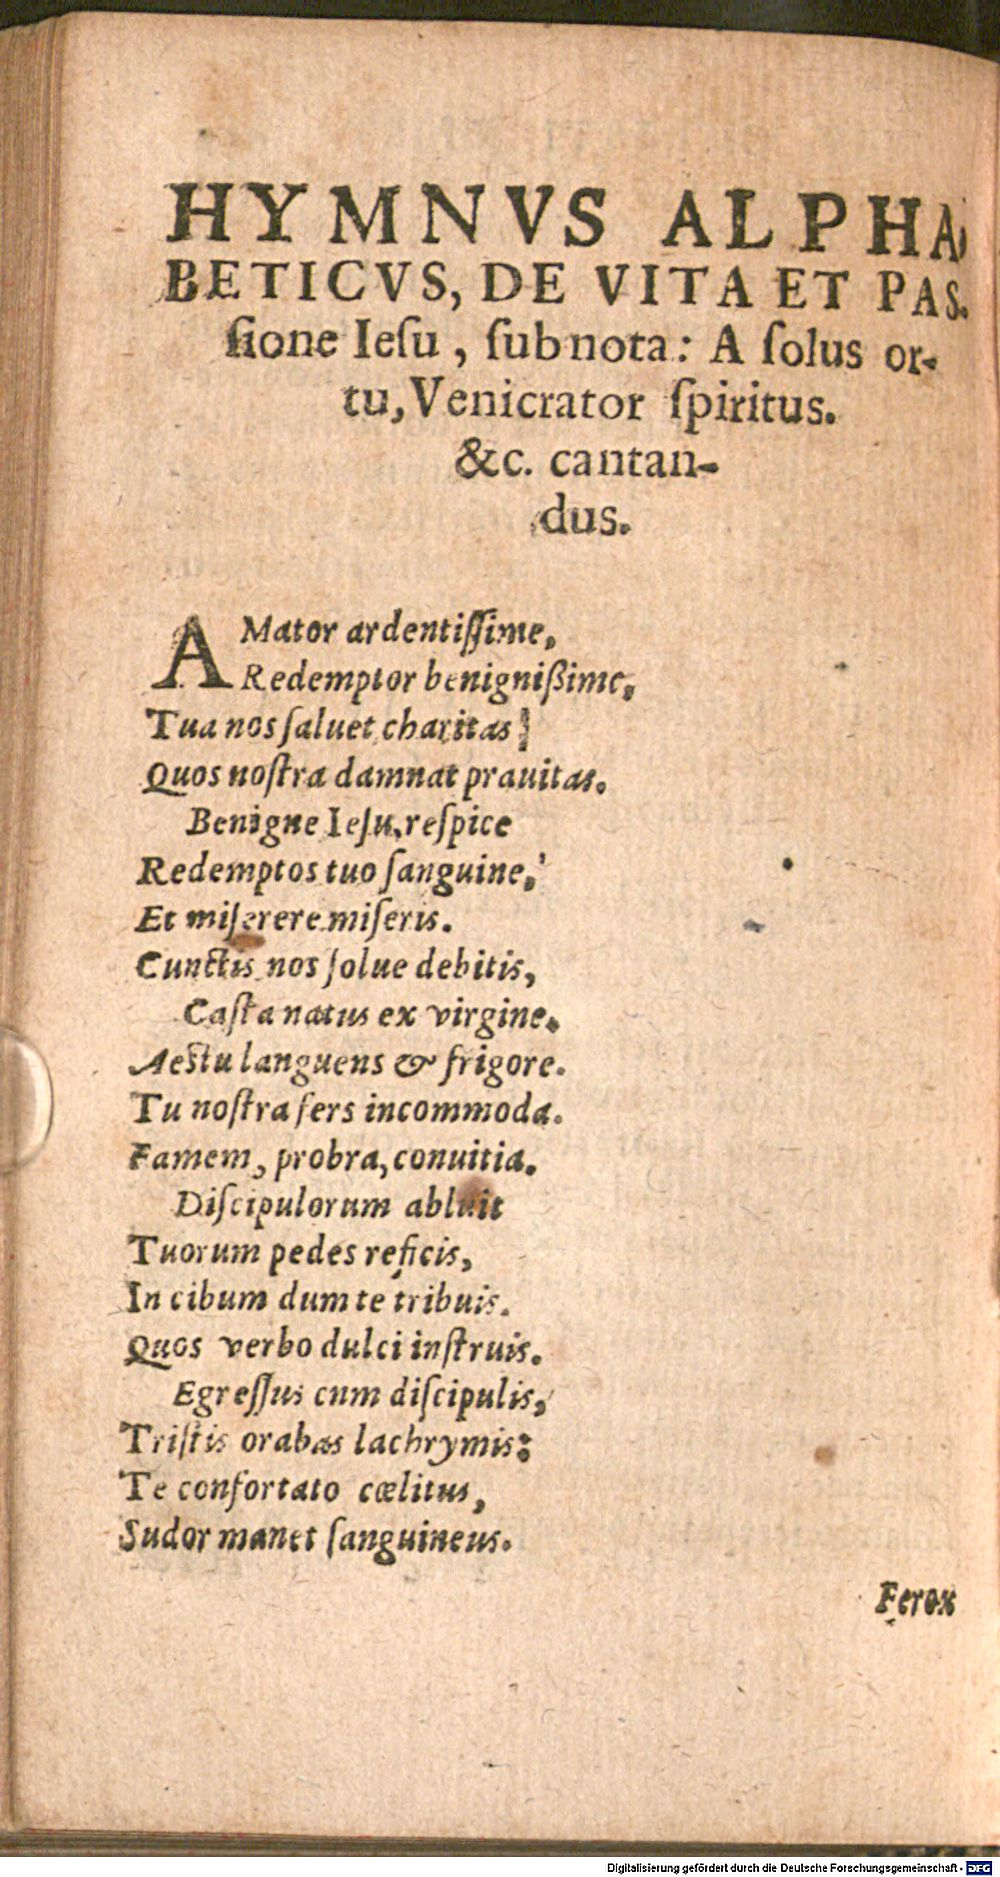 HYMNVS ALPHA
BETICVS, DE VITA ET PAS-
ſione Ieſu, ſub nota: A ſolus or-
tu, Venicrator ſpiritus.
&c. cantan-
dus.
AMator ardentiſſime,
Redemptor benignißime,
Tua nos ſaluet charitas:
Quos noſtra damnat prauitas.
Benigne Ieſu, reſpice
Redemptos tuo ſanguine,
Et miſerere miſeris.
Cunctis nos ſolue debitis,
Caſta natus ex virgine.
Aeſtu languens & frigore.
Tu noſtra fers incommoda.
Famem, probra, conuitia.
Diſcipulorum abluit
Tuorum pedes reficis,
In cibum dum te tribuis.
Quos verbo dulci inſtruis.
Egreſſus cum diſcipulis,
Triſtis orabas lachrymis:
Te confortato cœlitus,
Sudor manet ſanguineus.
Ferox
Digitalisierung gefördert durch die Deutsche Forschungsgemeinschaft - DFG